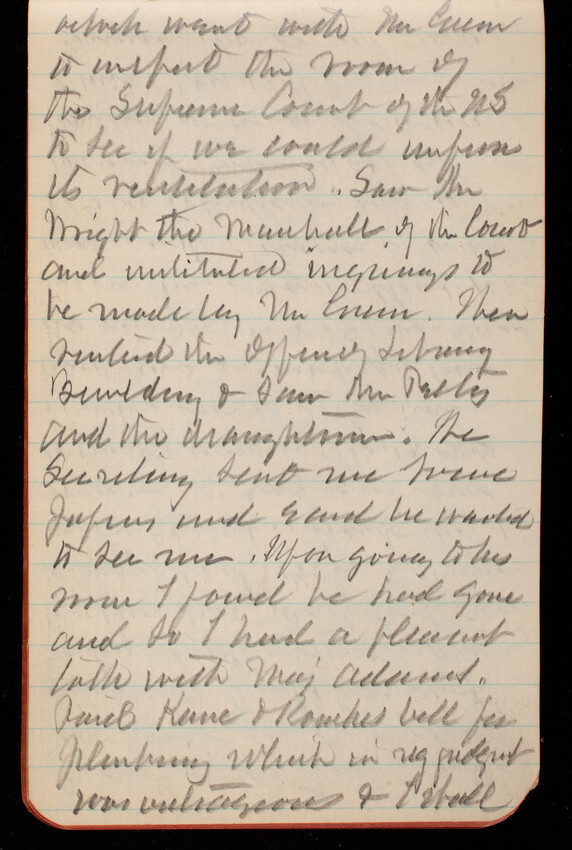 which went with Mr Green
to inspect the room of
the Supreme Court of the US
to see if we could improve
its ventilation. Saw Mr
Wright the Marshall of the Court
and instituted inquiries to
be made by Mr Green. Then
visited the Library
Building & saw Mr
and the draughtsmen. The
Secretary sent me some
papers and said he wanted
to see me. Upon going to his
room I found he had gone
and so I had a pleasant
talk with Maj Adams.
Paid Kane & bill for
plumbing which in my judgt
was outrageous & I shall